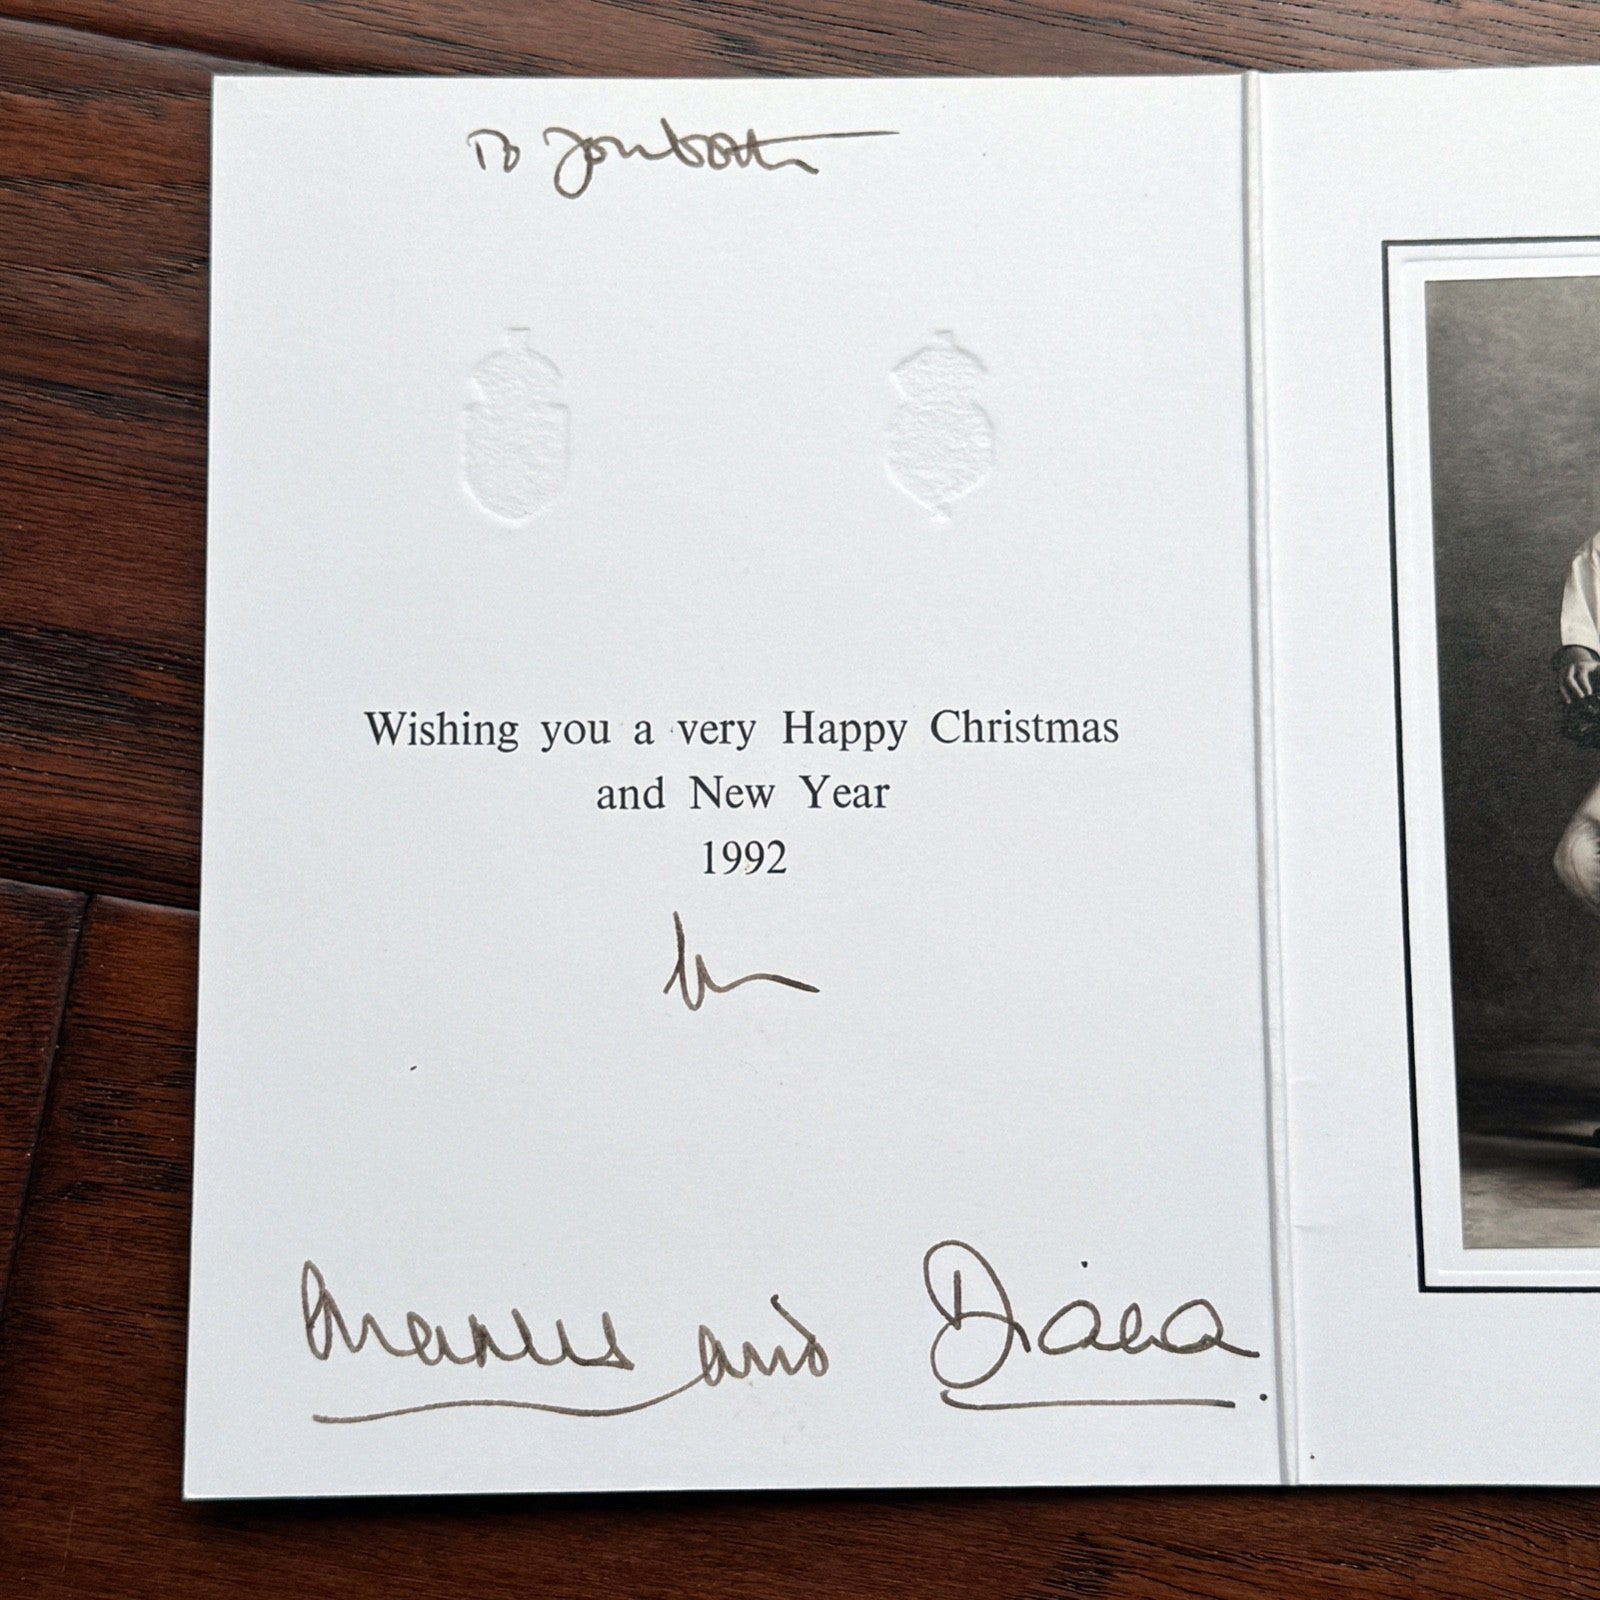 To you both
Wishing you a very Happy Christmas
and New Year
1992
from
Charles and Diana.